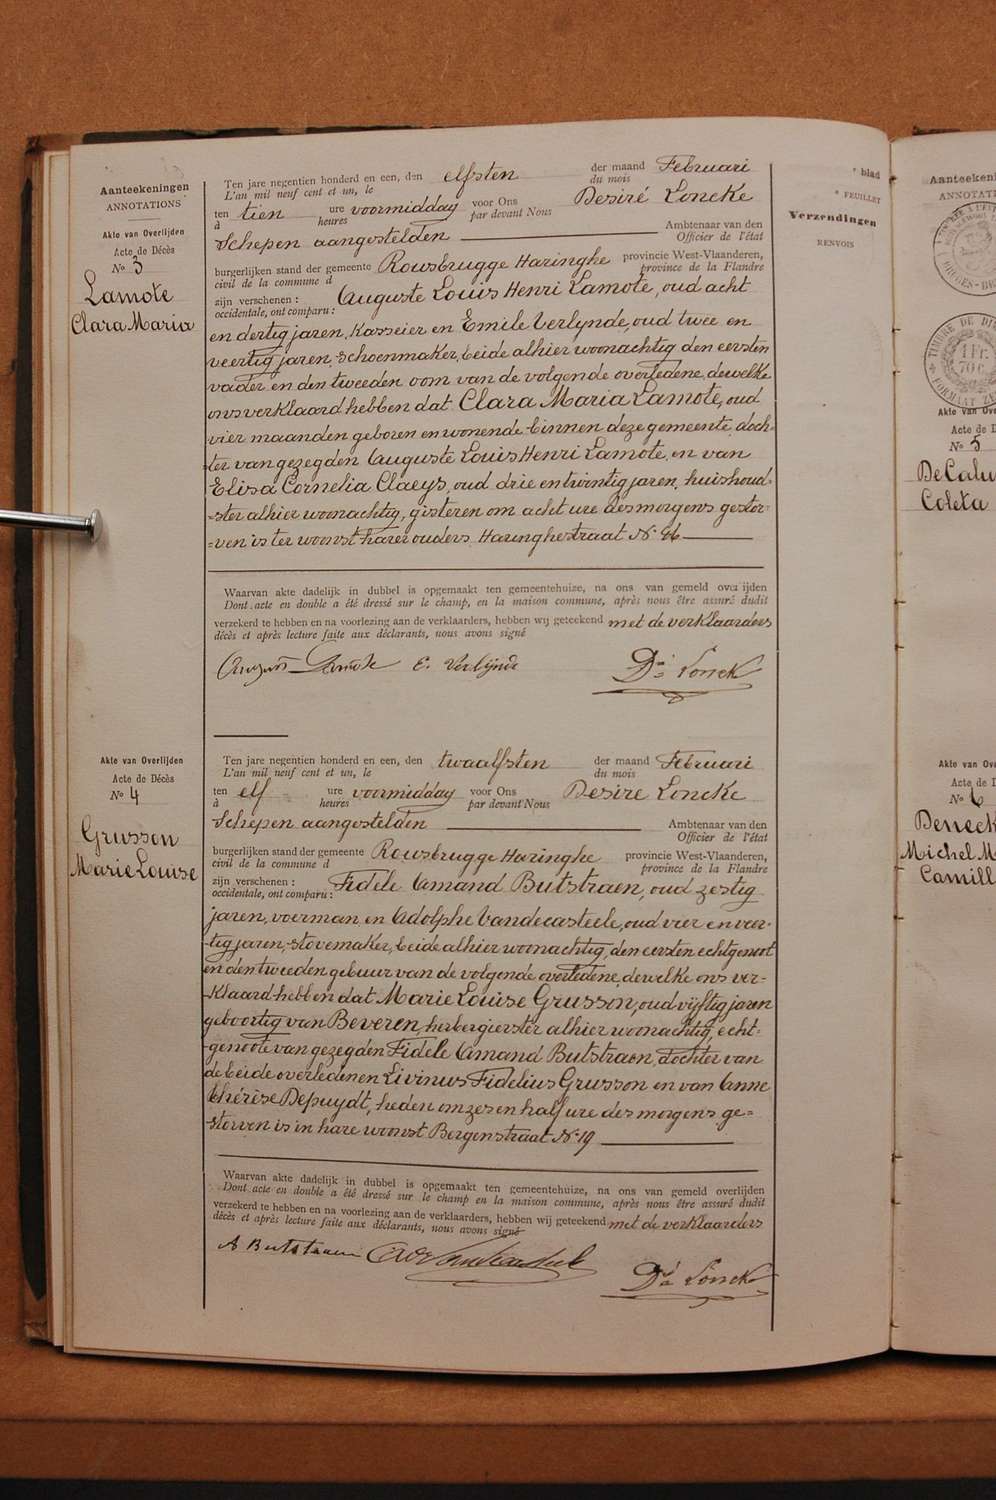 Aanteekeningen
ANNOTATIONS
Akte van Overlijden
Acte de Décès
No 3
Lamote
Clara Maria
Ten jare negentien honderd en een, den elfsten der maand Februari
L'an mil neuf cent et un, le du mois
ten tien ure voormiddag voor Ons Desiré Loncke
à heures par devant Nous
Schepen aangestelden Ambtenaar van den
Officier de l'état
burgerlijken stand der gemeente Rousbrugge Haringhe provincie West-Vlaanderen,
civil de la commune d province de la Flandre
zijn verschenen : Auguste Louis Henri Lamote, oud acht
occidentale, ont comparu :
en dertig jaren, Kasseier en Emile Verlynde, oud twee en
veertig jaren, schoenmaker, beide alhier woonachtig den eersten
vader en den tweeden oom van de volgende overledene, dewelke
ons verklaard hebben dat Clara Maria Lamote, oud
vier maanden geboren en wonende binnen deze gemeente, doch-
ter van gezegden Auguste Louis Henri Lamote, en van
Elisa Cornelia Claeys, oud drie en twintig jaren, huishoud-
-ster alhier woonachtig, gisteren om acht ure des morgens gestor-
-ven is ter woonst harer ouders, Haringhestraat No
Waarvan akte dadelijk in dubbel is opgemaakt ten gemeentehuize, na ons van gemeld overlijden
Dont acte en double a été dressé sur le champ, en la maison commune, après nous être assuré dudit
verzekerd te hebben en na voorlezing aan de verklaarders, hebben wij geteekend met de verklaarders
décès et après lecture faite aux déclarants, nous avons signé
August Lamote E. Verlijnde Dé Lonck
Akte van Overlijden
Acte de Décès
No 4
Grusson
Marie Louise
Ten jare negentien honderd en een, den twaalfsten der maand Februari
L'an mil neuf cent et un, le du mois
ten elf ure voormiddag voor Ons Desiré Loncke
à heures par devant Nous
Schepen aangestelden Ambtenaar van den
Officier de l'état
burgerlijken stand der gemeente Rousbrugge Haringhe provincie West-Vlaanderen,
civil de la commune d province de la Flandre
zijn verschenen : Fidele Amand Butstraen, oud zestig
occidentale, ont comparu :
jaren, voerman en Adolphe Vandecasteele, oud vier en veer-
-tig jaren, stovemaker, beide alhier woonachtig, den eersten echtgenoot
en den tweeden gebuur van de volgende overledene, dewelke ons ver-
-klaard hebben dat Marie Louise Grusson, oud vijftig jaren
geboortig van Beveren, herbergierster alhier woonachtig, echt-
-genoote van gezegden Fidele Amand Butstraen, dochter van
de beide overledenen Livinus Fidelius Grusson en van Anne
Thérèse Depuydt, heden om zes en half ure des morgens ge-
-storven is in hare woonst Bergenstraat No 19
Waarvan akte dadelijk in dubbel is opgemaakt ten gemeentehuize, na ons van gemeld overlijden
Dont acte en double a été dressé sur le champ en la maison commune, après nous être assuré dudit
verzekerd te hebben en na voorlezing aan de verklaarders, hebben wij geteekend met de verklaarders
décès et après lecture faite aux déclarants, nous avons signé
A Butstraen Dé Lonck
blad
FEUILLET
Verzendingen
RENVOIS
Aanteekening
ANNOTATIONS
TIMBRE DE DI
1 Fr.
70 c.
FORMAAT ZE
Akte van Ove
Acte de D
No 5
DeCalu
Coleta
Akte van Ove
Acte de D
No 6
Deneck
Michel M
Camill